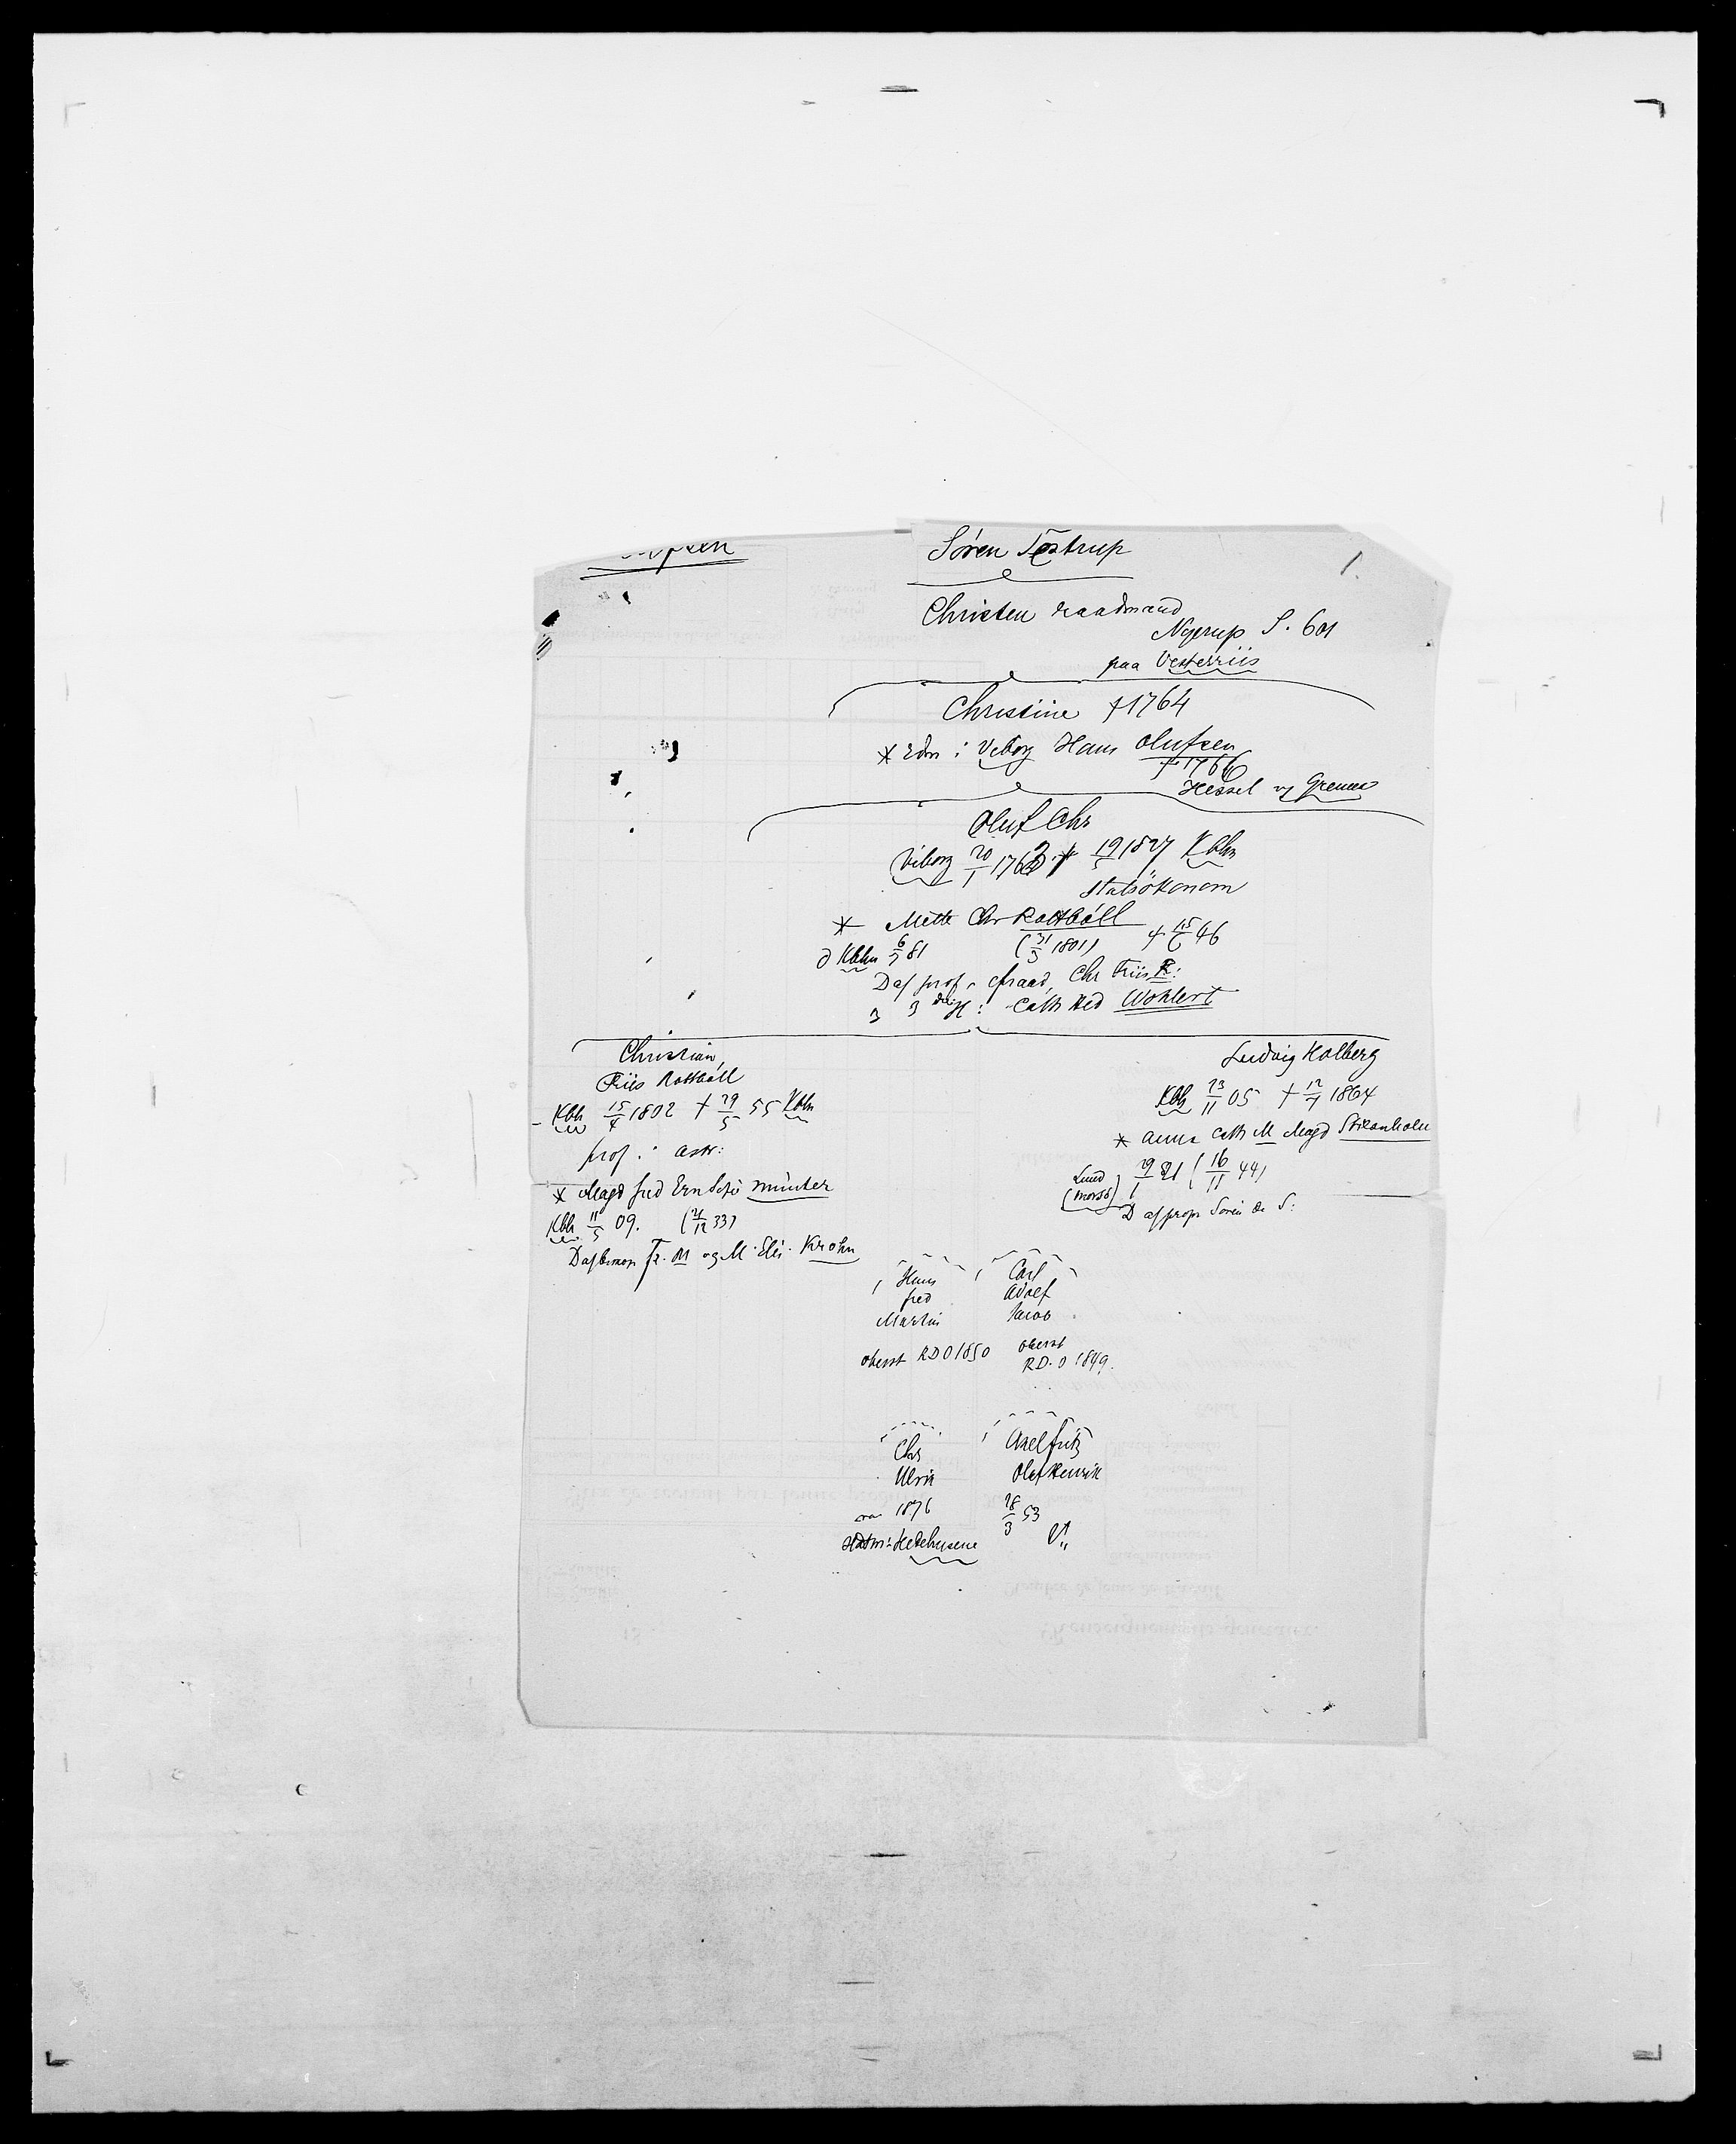 Søren Testrup
1.
Christen raadmand
Nyerup S. 601
paa Vesterriis
Christine † 1764
* Rdm i Viborg Hans Olufsen
† 1766
Hessel v/ Grenaa
Oluf Chr
Viborg 20/1 1763 † 19/5 1827 Kbhn
Statsøkonom
* Mette Chr Rottbøll
d Kbhn 6/7 81 (31/3 1801) † 15/6 46
D af prof. Chr Friis R:
Cath Hed Wohlert
Christian
Friis Rottbøll
- Kbh 15/4 1802 † 29/5 55 Kbhn
prof. i astr:
* Magd fred Ern Sofi Münter
Kbh 11/5 09. (21/12 33)
D af bisp Fr. M og M. Elis. Krohn
Ludvig Holberg
Kbh 23/11 05 † 12/7 1864
* Anna Cath M Magd Stilanholm
Lund (Morsø) 29/1 21 (16/11 44)
D af propr Søren de S:
Hans
fred
Martin
oberst RDO 1850
Carl
Adolf
Jacob
oberst
RD.O 1849.
Chr
Ulrik
1876
Hedehusene
Axel Fritz
Oluf Henrik
28/3 53